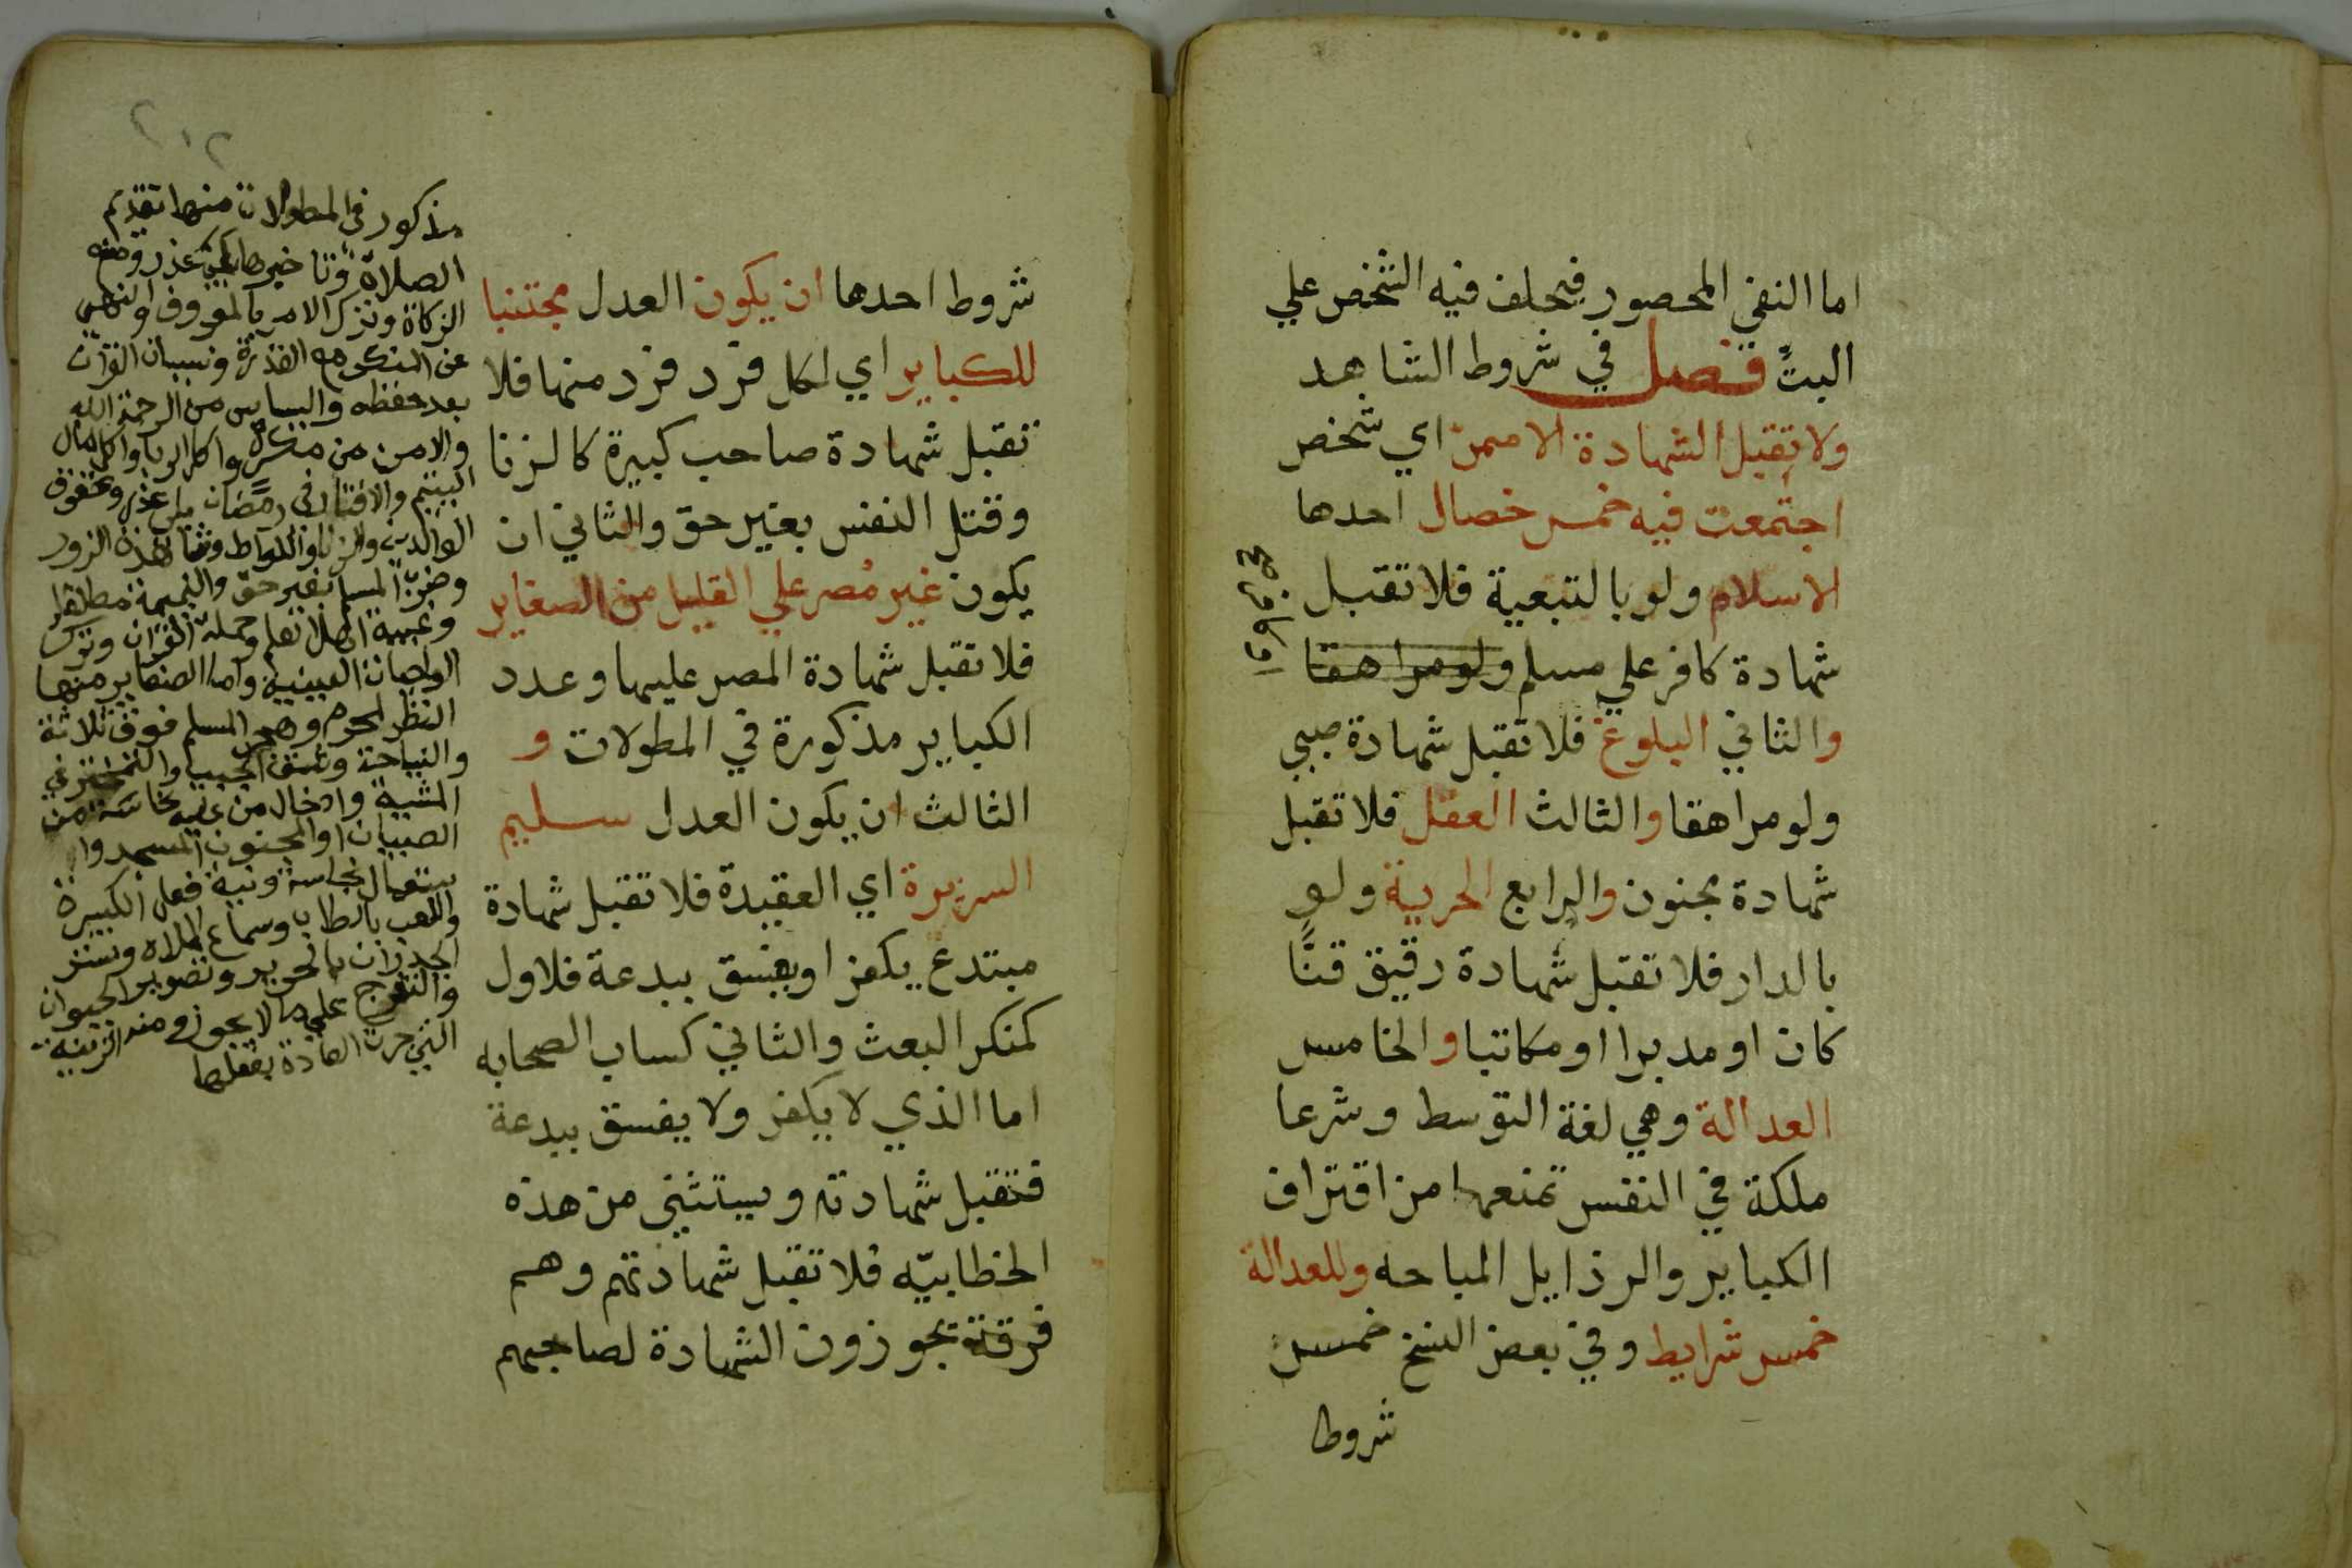 اما النفي المحصور فيحلف فيه الشخص علي
البتّ فصل في شروط الشاهد
ولا تقبل الشهادة الا ممن اي شخص
اجتمعت فيه خمس خصال احدها
الاسلام ولو بالتبعية فلا تقبل
شهادة كافر علي مسلم ولو مراهقا
والثاني البلوغ فلا تقبل شهادة صبي
ولو مراهقا والثالث العقل فلا تقبل
شهادة مجنون والرابع الحرية ولو
بالدار فلا تقبل شهادة رقيق قنًّا
كان او مدبرا او مكاتبا والخامس
العدالة وهي لغة التوسط وشرعا
ملكة في النفس تمنعها من اقتراف
الكباير والرذايل المباحه وللعدالة
خمس شرايط وفي بعض النسخ خمس
شروط
شروط احدها ان يكون العدل مجتنبا
للكباير اي لكل فرد فرد منها فلا
تقبل شهادة صاحب كبيرة كالزنا
وقتل النفس بغير حق والثاني ان
يكون غير مصر علي القليل من الصغاير
فلا تقبل شهادة المصر عليها وعدد
الكباير مذكورة في المطولات و
الثالث ان يكون العدل سليم
السريرة اي العقيدة فلا تقبل شهادة
مبتدع يكفر او يفسق ببدعة فلاول
كمنكر البعث والثاني كساب الصحابه
اما الذي لا يكفر ولا يفسق ببدعة
فتقبل شهادته ويستثني من هذه
الخطابيّه فلا تقبل شهادتهم وهم
فرقة يجوزون الشهادة لصاحبهم
٢١٢
مذكور في المطولات منها تقديم
الصلاة وتاخيرها بغير عذر ومنع
الزكاة وترك الامر بالمعروف والنهي
عن المنكر مع القدرة ونسيان القران
بعد حفظه والياس من الرحمة الله
والامن من مكره واكل الربا واكل مال
اليتيم والافطار في رمضان من غير عذر وعقوق
الوالدين والزنا واللواط وشهادة الزور
وضرب المسلم بغير حق والنميمة مطلقا
وغيبة اهل العلم وحملة القران وترك
الواجبات العينية واما الصغاير منها
النظر لمحرم وهجر المسلم فوق ثلاثة
والنياحة وشق الجيب والتبختر في
المشية وادخال من نجاسة من
الصبيان او المجنون المسجد وا
ستعمال نجاسة ونية فعل الكبيرة
واللعب بالطاب وسماع الملاه وستر
الجدران بالحرير وتصوير الحيوان
والتفرج علي ما لا يجوز ومنه الزينة
التي جرت العادة بفعلها